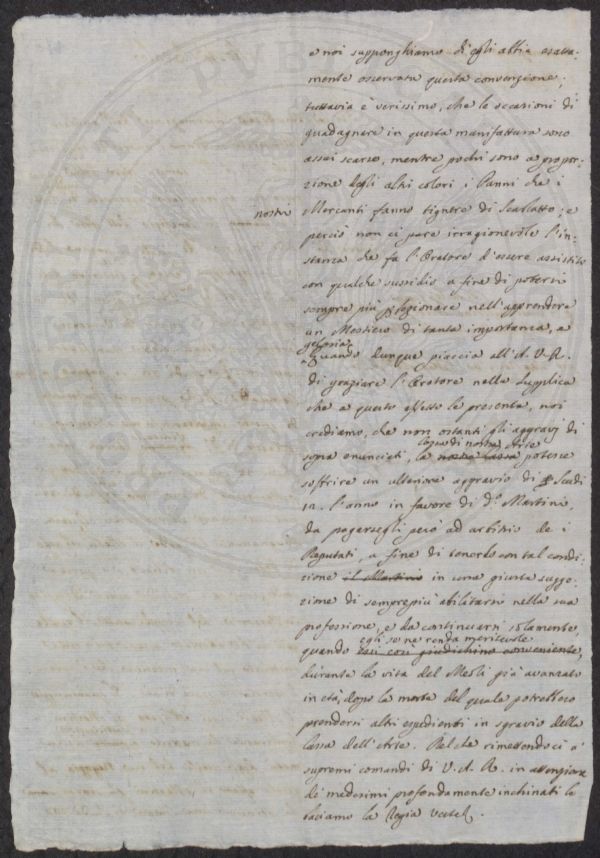 e noi supponghiamo ch'egli abbia esatta-
mente osservata questa convenzione;
tuttavia è verissimo, che le occasioni di
guadagnare in questa manifattura sono
assai scarse, mentre pochi sono a propor-
zione degli altri colori i Panni che i
nostri
Mercanti fanno tignere di Scarlatto; e
perciò non ci pare irragionevole l'in-
stanza che fa l'Oratore d'essere assistito
con qualche sussidio a fine di potersi
sempre più perfezionare nell'apprendere
un Mestiero di tanta importanza, e
gelosia.
Quando dunque piaccia all'A. V. R.
di graziare l'Oratore nella supplica
che a questo effetto le presenta, noi
crediamo, che non ostanti gli aggravj di
sopra enunciati, la nostra Cassa potesse
di nostra Arte
soffrire un ulteriore aggravio di Scudi
12. l'anno in favore di d.o Martini,
da pagarsegli però ad arbitrio de i
Deputati, a fine di tenerlo con tal condi-
zione il Martini in una giusta sugge-
zione di sempre più abilitarsi nella sua
professione, e da continuarsi solamente,
egli se ne renda meritevole
quando essi così giudichino conveniente,
durante la vita del Mesli già avanzato
in età, dopo la morte del quale potrebbero
prendersi altri espedienti in sgravio della
Cassa dell'Arte. Del che rimettendoci a'
supremi comandi di V. A. R. in attenzione
de' medesimi profondamente inchinati le
baciamo la Regia Veste.